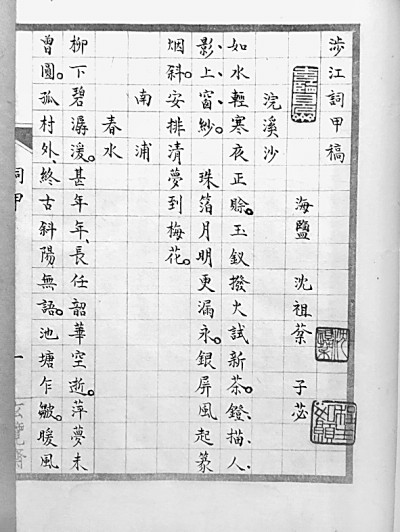 涉江詞甲稿
海鹽 沈祖棻 子苾
浣溪沙
如水輕寒夜正賒。玉釵撥火試新茶。鐙描人
影上窗紗。 珠箔月明更漏永。銀屏風起篆
烟斜。安排清夢到梅花。
南浦
春水
柳下碧潺湲。甚年年、長任韶華空逝。萍夢未
曾圓。孤村外、終古斜陽無語。池塘乍皺。暖風
詞甲
一